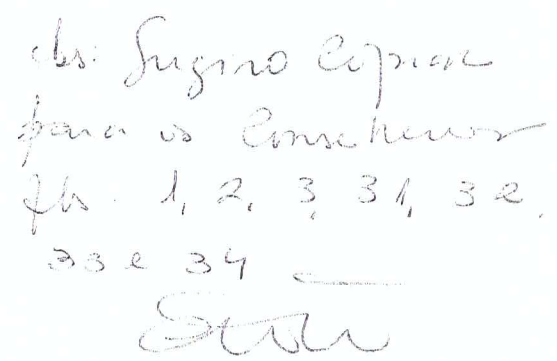 obs: Sugiro copiar
para os Conselheiros
fls. 1, 2, 3, 31, 32,
33 e 34